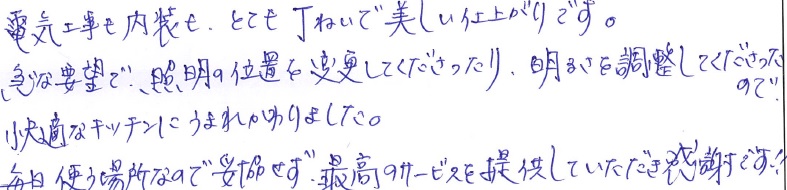 電気工事も内装も、とても丁ねいで美しい仕上がりです。
急な要望で、照明の位置を変更してくださったり、明るさを調整してくださったので
快適なキッチンにうまれかわりました。
毎日使う場所なので妥協せず、最高のサービスを提供していただき感謝です!!